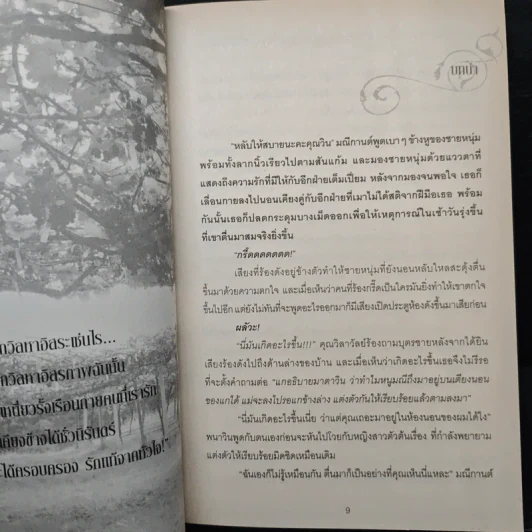 ...วิลหาอิสระเช่นไร...
...วิลหาอิสรภาพฉันนั้น
...เหนี่ยวรั้งเรือนกายคนที่เรารัก
...เคียงข้างได้ชั่วนิรันดร์
...ะได้ครอบครอง รักแท้จากหัวใจ!”
บทนำ
“หลับให้สบายนะคะคุณวิน” มณีกานต์พูดเบาๆ ข้างหูของชายหนุ่ม
พร้อมทั้งลากนิ้วเรียวไปตามสันแก้ม และมองชายหนุ่มด้วยแววตาที่
แสดงถึงความรักที่มีให้กับอีกฝ่ายเต็มเปี่ยม หลังจากมองจนพอใจ เธอก็
เลื่อนกายลงไปนอนเคียงคู่กับอีกฝ่ายที่เมาไม่ได้สติจากฝีมือเธอ พร้อม
กันนั้นเธอก็ปลดกระดุมบางเม็ดออกเพื่อให้เหตุการณ์ในเช้าวันรุ่งขึ้น
ที่เขาตื่นมาสมจริงยิ่งขึ้น
“กรี๊ดดดดดดด!”
เสียงที่ร้องดังอยู่ข้างตัวทำให้ชายหนุ่มที่ยังนอนหลับใหลสะดุ้งตื่น
ขึ้นมาด้วยความตกใจ และเมื่อเห็นว่าคนที่ร้องกรี๊ดเป็นใครมันยิ่งทำให้เขาตกใจ
ขึ้นไปอีก แต่ยังไม่ทันที่จะพูดอะไรออกมาก็มีเสียงเปิดประตูห้องดังขึ้นมาเสียก่อน
ผลัวะ!
“นี่มันเกิดอะไรขึ้น!!!” คุณวิลาวัลย์ร้องถามบุตรชายหลังจากได้ยิน
เสียงร้องดังไปถึงด้านล่างของบ้าน และเมื่อเห็นว่าเกิดอะไรขึ้นเธอจึงไม่รีรอ
ที่จะตั้งคำถามต่อ “แกอธิบายมาตาวิน ว่าทำไมหนูมณีถึงมาอยู่บนเตียงนอน
ของแกได้ แม่จะลงไปรอแกข้างล่าง แต่งตัวกันให้เรียบร้อยแล้วตามลงมา”
“นี่มันเกิดอะไรขึ้นเนี่ย ว่าแต่คุณเถอะมาอยู่ในห้องนอนของผมได้ไง”
พนาวินพูดกับตนเองก่อนจะหันไปโวยกับหญิงสาวตัวต้นเรื่อง ที่กำลังพยายาม
แต่งตัวให้เรียบร้อยมิดชิดเหมือนเดิม
“ฉันเองก็ไม่รู้เหมือนกัน ตื่นมาก็เป็นอย่างที่คุณเห็นนี่แหละ” มณีกานต์
9